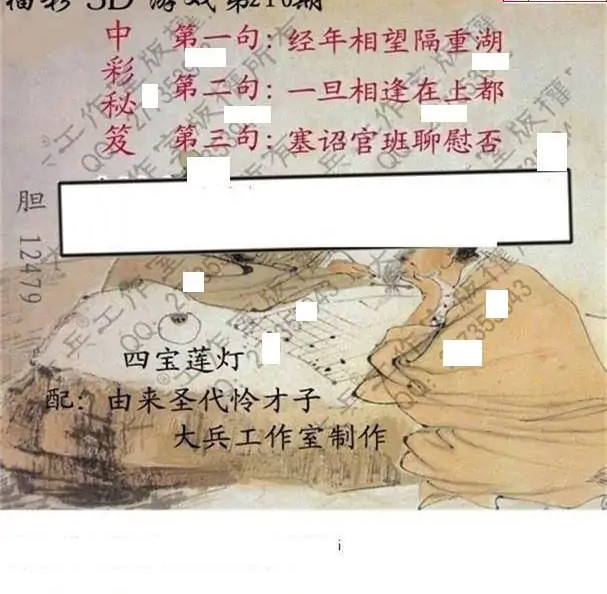 福彩 3D 游戏第210期
中彩秘笈
第一句：经年相望隔重湖
第二句：一旦相逢在上都
第三句：塞诏官班聊慰否
胆 12479
四宝莲灯
配：由来圣代怜才子
大兵工作室制作
i